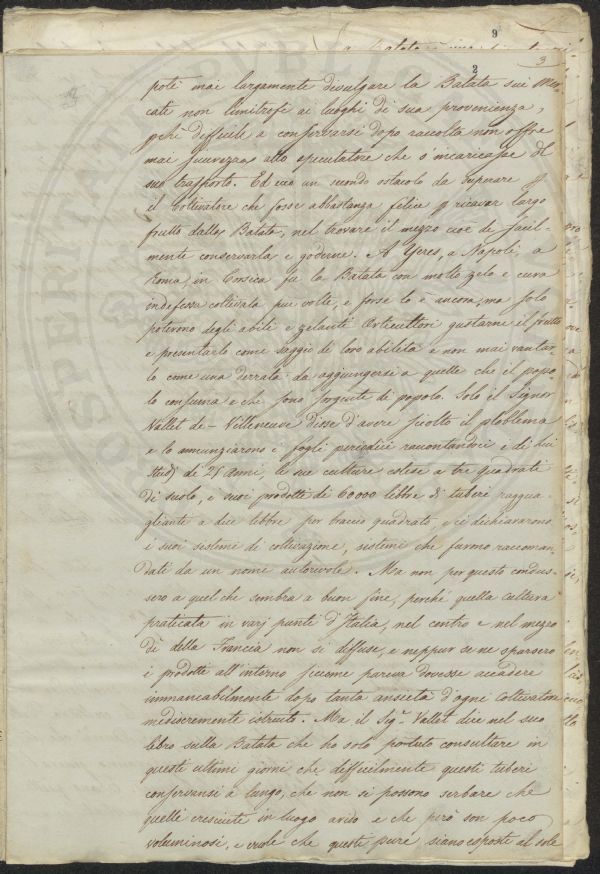 9
2
3
potè mai largamente divulgare la Batata sui Mer-
cati non limitrofi ai luoghi di sua provenienza,
pchè difficile a conservarsi dopo raccolta non offre
mai sicurezza allo speculatore che s'incaricasse del
suo trasporto. Ed ecco un secondo ostacolo da superare p
il Coltivatore che fosse abbastanza felice p ricavar largo
frutto dalla Batata, nel trovare il mezzo cioè di facil-
mente conservarla e goderne. A Yeres, a Napoli a
Roma, in Corsica fu la Batata con molto zelo e cura
indefessa coltivata più volte, e forse lo è ancora, ma solo
poterono degli abili e zelanti Orticultori gustarne il frutto
e presentarlo come saggio di loro abilità e non mai vantar-
lo come una derrata da aggiungersi a quelle che il popo-
lo consuma e che sono sorgente di popolo. Solo il Signor
Vallet de-Villeneuve disse d'avere sciolto il ploblema
e lo annunziarono i fogli periodici raccontandoci i di lui
studj di 25 anni, le sue culture estese a tre quadrati
di suolo, e suoi prodotti di 60000 lebbre di tuberi raggua-
gliante a due lebbre per braccio quadrato, e ci dichiararono
i suoi sistemi di coltivazione, sistemi che furono raccoman-
dati da un nome autorevole. Ma non per questo condus-
sero a quel che sembra a buon fine, perchè quella cultura
praticata in varj punti d'Italia, nel centro e nel mezzo
dì della Francia non si diffuse, e neppur se ne sparsero
i prodotti all'interno siccome pareva dovesse accadere
immancabilmente dopo tanta ansietà d'ogni coltivatore
mediocremente istruito. Ma il Sigr. Vallet dice nel suo
libro sulla Batata che ho solo potuto consultare in
questi ultimi giorni che difficilmente questi tuberi
conservansi a lungo, che non si possono serbare che
quelli cresciuti in luogo arido e che però son poco
voluminosi, e vuole che questi pure siano esposti al sole